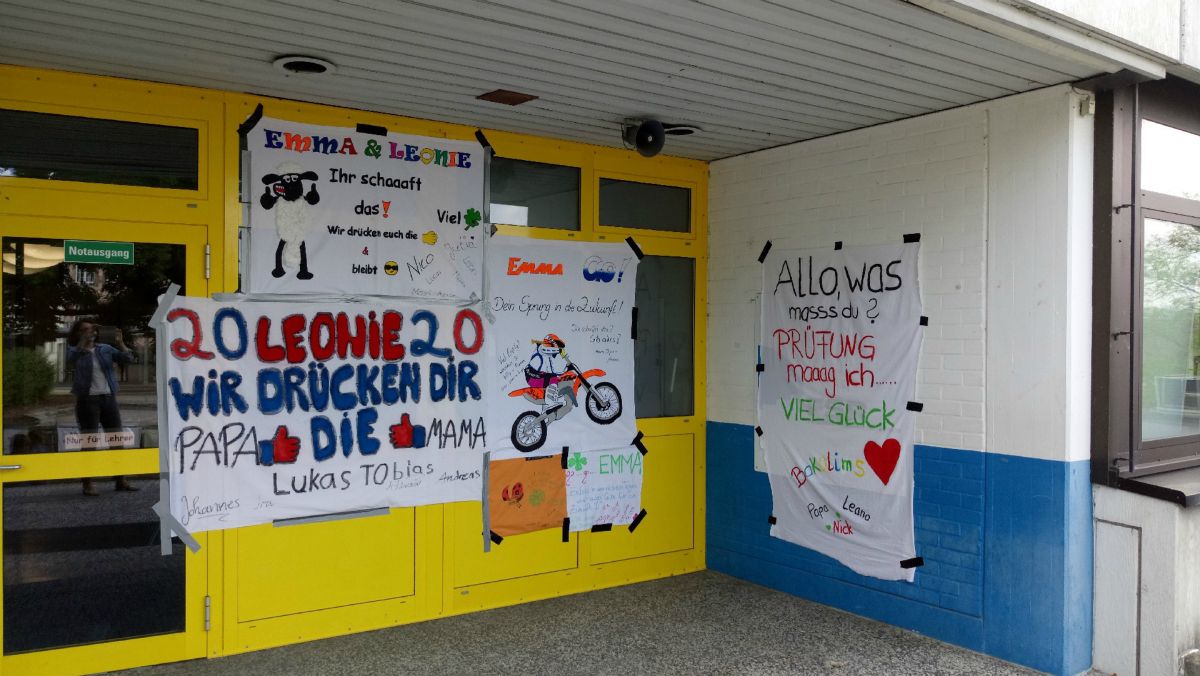 Notausgang
Nur für Lehrer
EMMA & LEONIE
Ihr schaaaft
das!
Viel
Wir drücken euch die
&
bleibt
Nico
20 LEONIE 20
WIR DRÜCKEN DIR
PAPA DIE MAMA
LUKAS TObias
Johannes
Andreas
EMMA GO!
Dein Sprung in die Zukunft!
EMMA
ALLO, WAS
masss du?
PRÜFUNG
maaag ich......
VIEL GLÜCK
Papa Leano
Nick